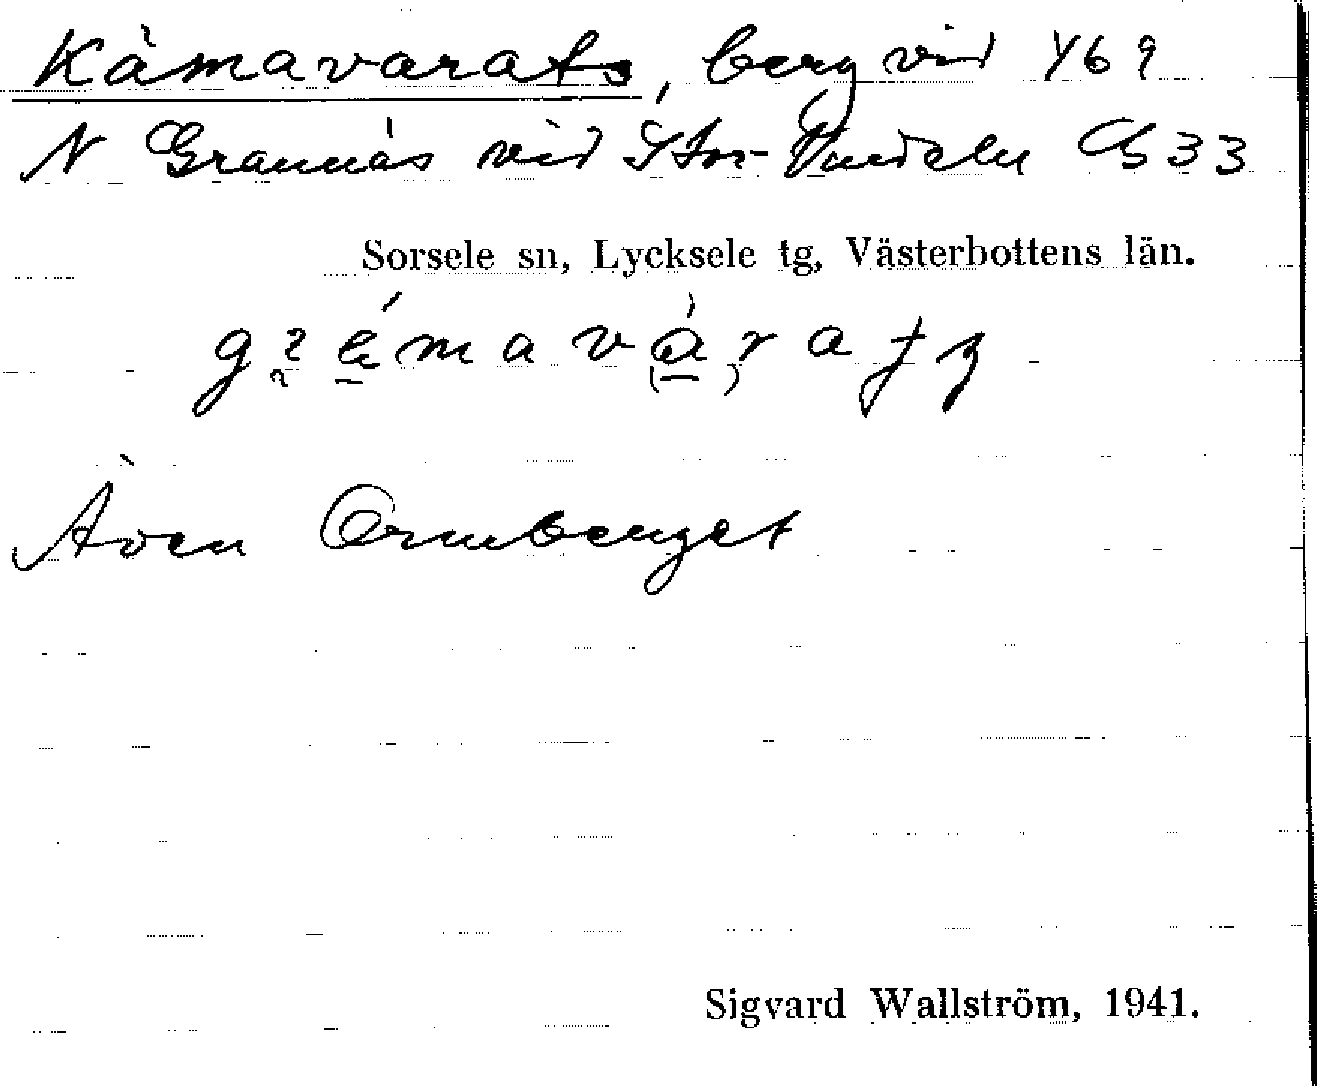 Kåmavarats, berg vid 469
N Grannäs vid Stor-Vindeln C 33
Sorsele sn, Lycksele tg, Västerbottens län.
Även Ormberget
Sigvard Wallström, 1941.